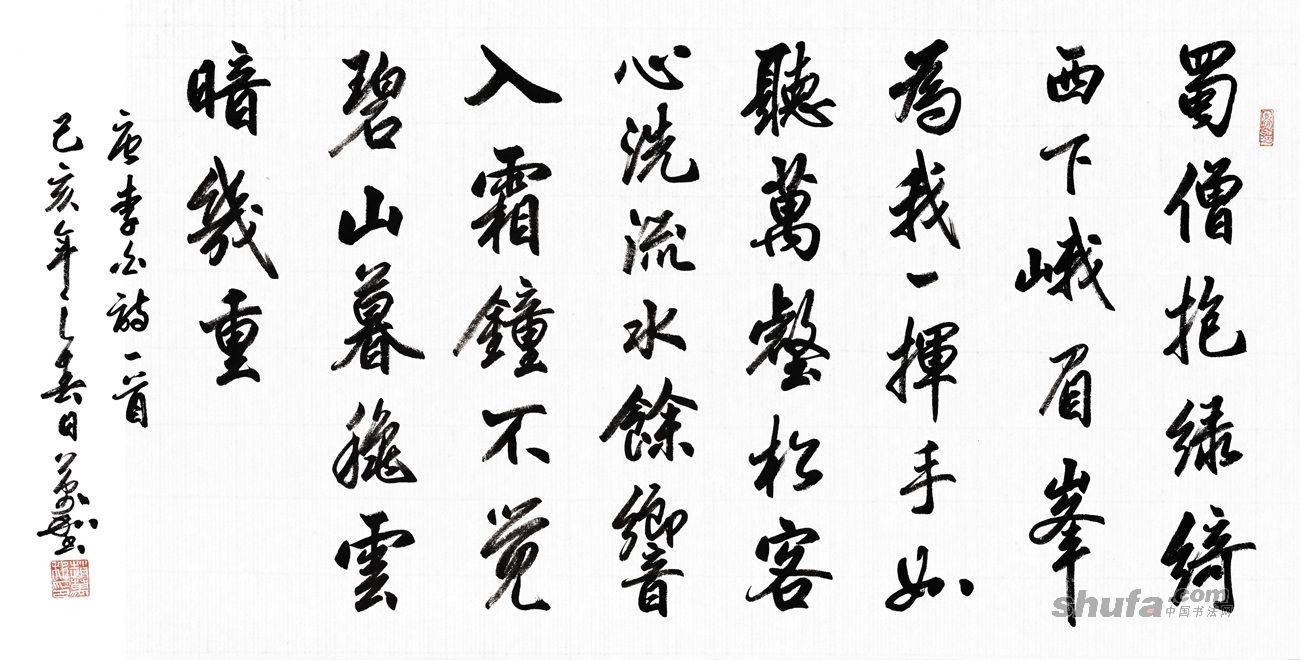 蜀僧抱绿綺
西下峨眉峯
為我一揮手如
聽萬壑松客
心洗流水餘響
入霜鐘不觉
碧山暮穐雲
暗幾重
唐李白詩一首
己亥年之春日
shufa.com
中国书法网